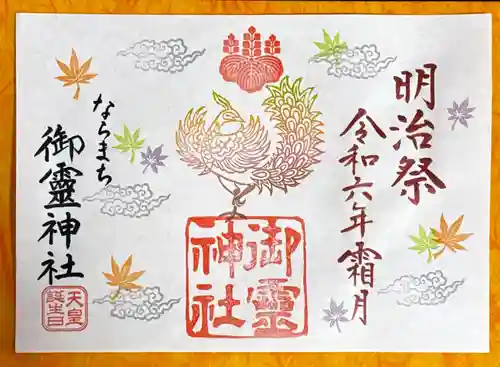 明治祭
令和六年霜月
御靈
神社
ならまち
御靈神社
天皇
誕生日